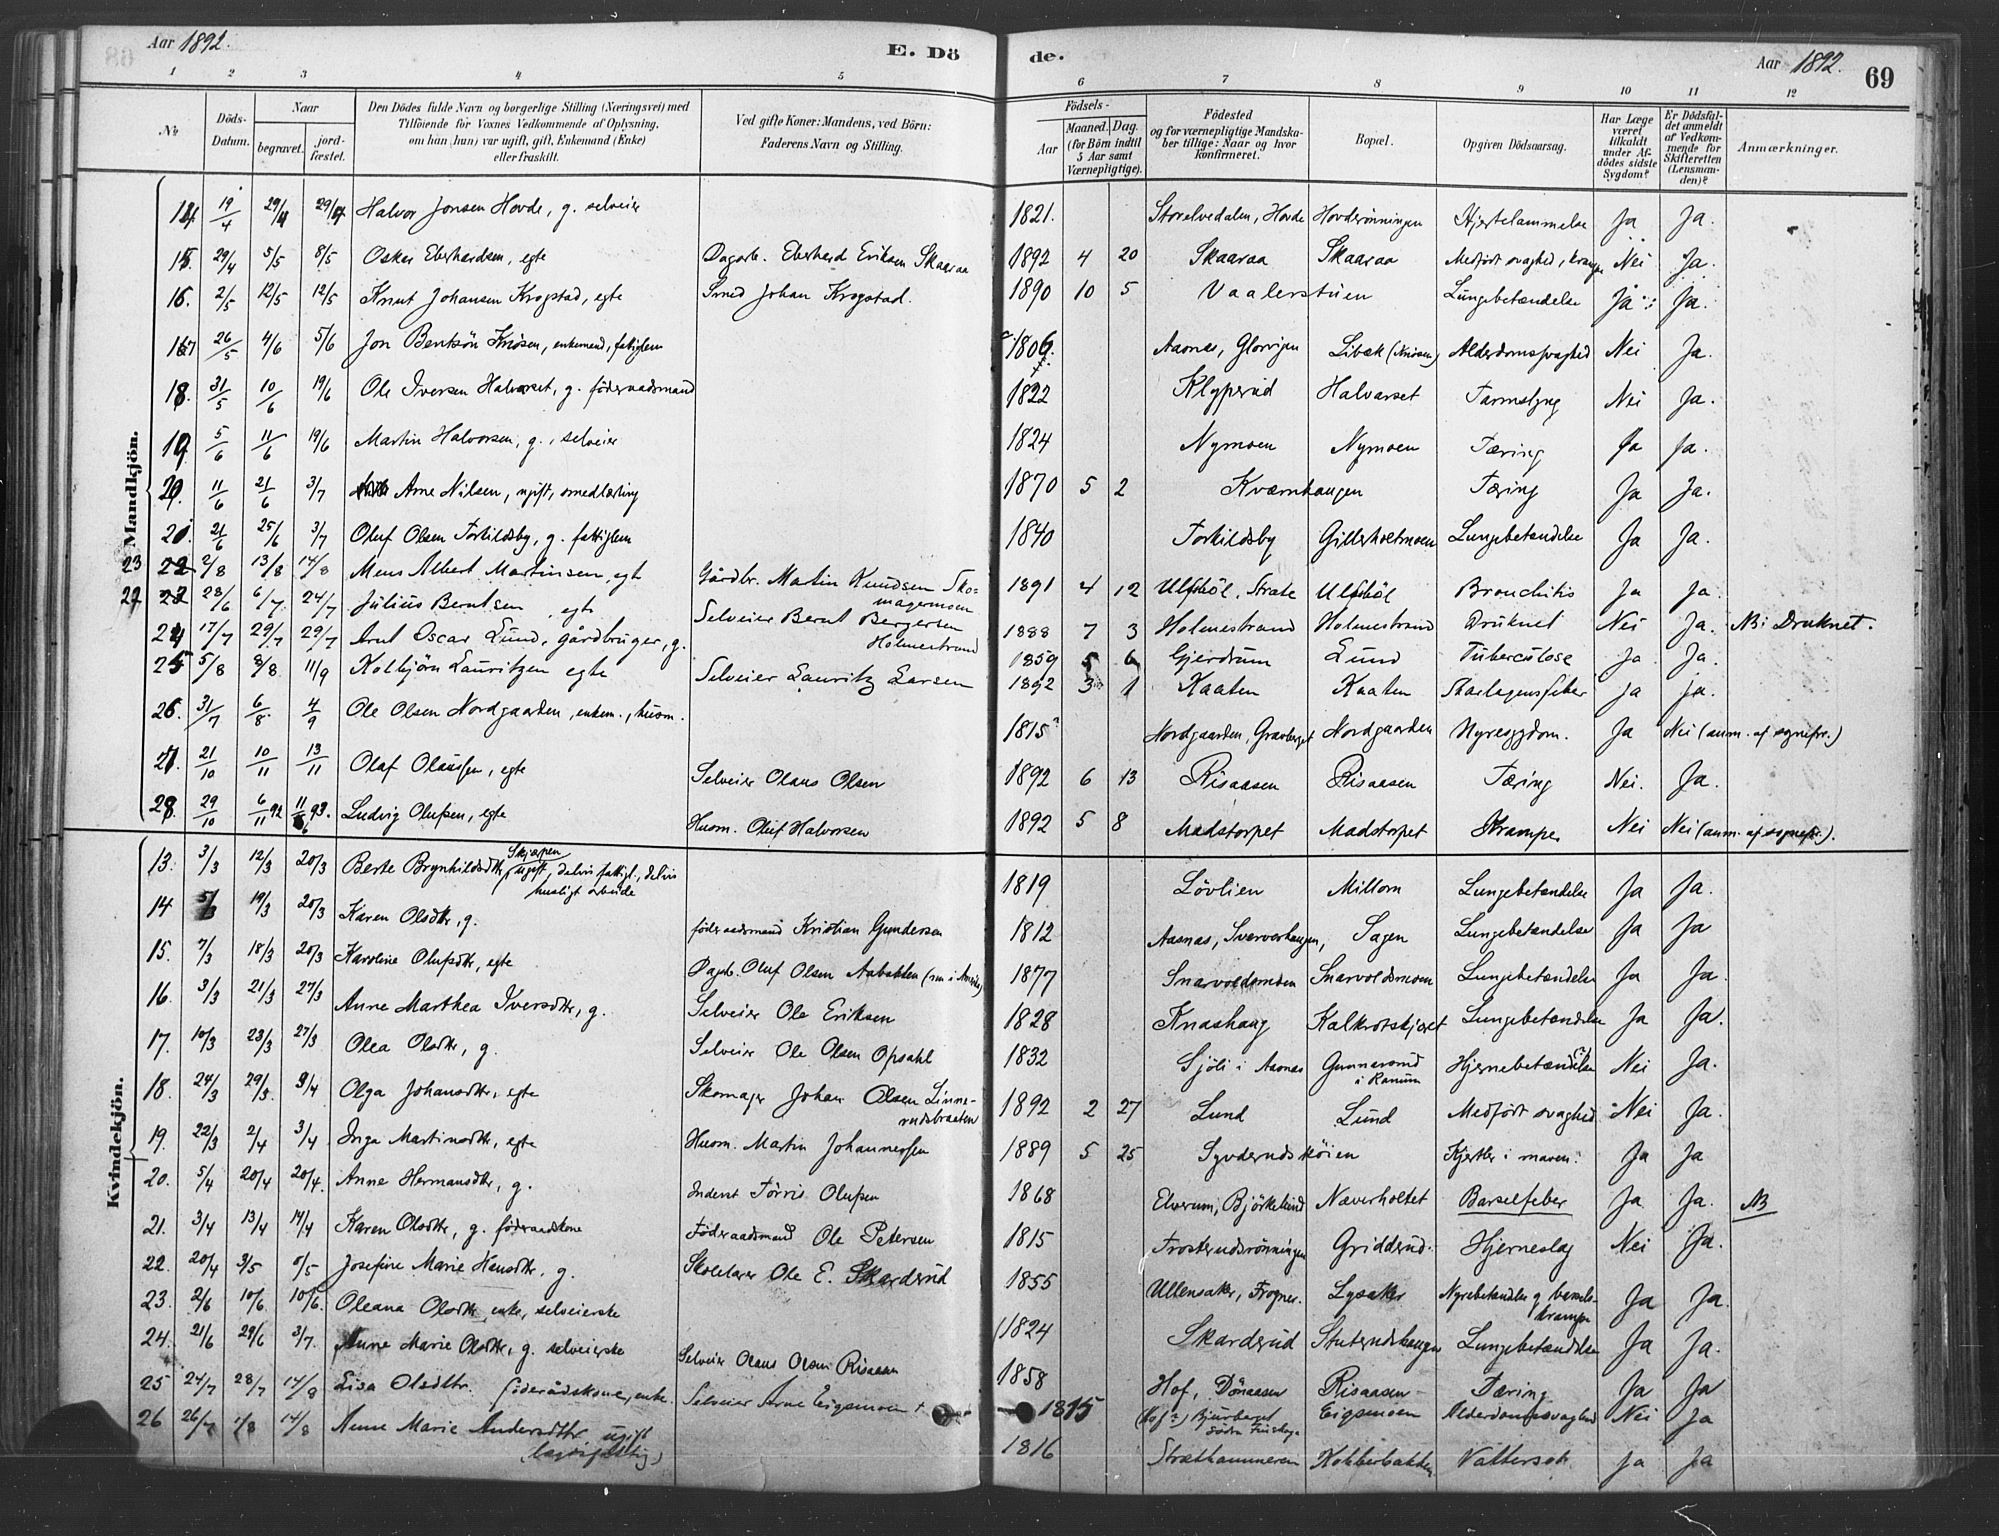 Aar 1892.
E. Dö de.
Aar 1892.
69
1 2 3 4 5 6 7 8 9 10 11 12
№
Döds-Datum.
Naar
begravet.
jord-fæstet.
Den Dödes fulde Navn og borgerlige Stilling (Næringsvei) med
Tilföiende for Voxnes Vedkommende af Oplysning,
om han (hun) var ugift, gift, Enkemand (Enke)
eller fraskilt.
Ved gifte Koner: Mandens, ved Börn:
Faderens Navn og Stilling.
Födsels-
Aar
Maaned. Dag.
(for Börn indtil
5 Aar samt
Værnepligtige).
Födested
og for værnepligtige Mandska-
ber tillige: Naar og hvor
konfirmeret.
Bopæl.
Opgiven Dödsaarsag.
Har Læge
været
tilkaldt
under Af-
dödes sidste
Sygdom?
Er Dödsfal-
det anmeldt
af Vedkom-
mende for
Skifteretten
(Lensman-
den)?
Anmærkninger.
Mandkjön.
14. 19/4 29/4 29/4 Halvor Jonsen Hovde, g. selveier 1821. Storelvedalen, Hovde Hovderönningen Hjertelammelse Ja Ja.
15. 29/4 5/5 8/5 Oskar Eberhardsen, egte Dagarb. Eberhard Eriksen Skaaraa 1892 4 20 Skaaraa Skaaraa Medfödt svaghed, krampe Nei Ja.
16. 2/5 12/5 12/5 Knut Johansen Krogstad, egte Smed Johan Krogstad. 1890 10 5 Vaalerstuen Lungebetændelse Ja Ja.
17 26/5 4/6 5/6 Jon Bentsön Knösen, enkemand, fattiglem 1806. Aasnas, Glorvigen Libæk (Knösen) Alderdomssvaghed Nei Ja.
18. 31/5 10/6 19/6 Ole Iversen Halvarset, g. föderaadsmand 1822 Klyperud Halvarset Tarmslyng Nei Ja.
19. 5/6 11/6 19/6 Martin Halvorsen, g., selveier 1824 Nymoen Nymoen Tæring Ja Ja.
20. 11/6 21/6 3/7 Arne Nilsen, ugift, smedlærling 1870 5 2 Kværnhaugen Tæring Ja Ja.
21. 21/6 25/6 3/7 Oluf Olsen Torkildsby, g. fattiglem 1840 Torkildsby Gillerholtmoen Lungebetændelse Ja Ja.
23 2/8 13/8 14/8 Mens Albert Martinsen, egt Gårdbr. Martin Knudsen Sko-
magermoen 1891 4 12 Ulfsböl, Strate Ulfsböl Bronchitis Ja Ja.
22 28/6 6/7 24/7 Julius Berntsen, egte Selveier Bernt Bergersen
Holmestrand 1888 7 3 Holmestrand Holmestrand Druknet Nei Ja. NB: Druknet.
24 17/7 29/7 29/7 Arnt Oscar Lund, gårdbruger, g. 1859 5 6 Gjerdrum Lund Tuberculose Ja Ja.
25 5/8 8/8 11/9 Kolbjörn Lauritzen egte Selveier Lauritz Larsen 1892 3 1 Kaaten Kaaten Skarlagensfeber Ja ja.
26. 31/7 6/8. 4/9 Ole Olsen Nordgaarden, enkem., husm. 1815? Nordgaarden, Gravberget Nordgaarden Nyresygdom. Ja Nei (anm. af sognepr.)
27. 21/10 10/11 13/11 Olaf Olaussen, egte Selveier Olaus Olsen 1892 6 13 Risaasen Risaasen Tæring Nei. Ja.
28. 29/10 6/11 92 11/6 93. Ludvig Olufsen, egte Husm. Oluf Halvorsen 1892 5 8 Madstorpet Madstorpet Krampe Nei Nei (anm. af sognepr.).
Kvindekjön.
13. 3/3 12/3 20/3 Berte Brynhildsdtr, Skjærpen
ugift, delvis fattigl., delvis
husligt arbeide 1819 Lövlien Millom Lungebetændelse Ja Ja.
14 5/3 19/3 20/3 Karen Olsdtr, g. föderaadsmand Kristian Gundersen 1812 Aasnas, Sververhaugen, Sagen Lungebetændelse Ja Ja
15. 7/3 18/3 20/3 Karoline Olufsdtr, egte Dagarb. Oluf Olsen Aabakken 1877 Snarvoldsmoen Snarvoldsmoen Lungebetændelse Ja Ja.
16. 3/3 21/3 27/3 Anne Marthea Iversdtr, g. Selveier Ole Eriksen 1828 Knashaug Kalkrotskjæret Lungebetændelse Ja Ja.
17. 10/3 23/3 27/3 Olea Olsdtr, g. Selveier Ole Olsen Opsahl 1832 Sjöli i Aasnas Gunnarsrud
i Ranum Hjernebetændelse Nei Ja.
18. 24/3 29/3. 9/4 Olga Johansdtr, egte Skomager Johan Olsen Linne-
rudsbraaten 1892 2 27 Lund Lund Medfödt svaghed Nei Ja.
19. 22/3 2/4 3/4 Inga Martinsdtr, egte Husm. Martin Johannessen 1889 5 25 Syvderudsköien Kjertler i maven. Ja Ja
20. 5/4 20/4 20/4. Anne Hermansdtr, g. Inderst Törris Olufsen 1868 Elverum, Björkelund Næverholtet Barselfeber Ja Ja. NB
21. 3/4 13/4 14/4 Karen Olsdtr, g. föderaadskone Föderaadsmand Ole Petersen 1815 Frosterudsrönningen Gridderud. Hjerneslag Nei Ja.
22. 20/4 3/5 5/5 Josefine Marie Hansdtr, g. Skolelærer Ole E. Skarderud 1855 Ullensaker, Frogner. Lysaker Nyrebetændelse og barsels-
krampe Ja Ja.
23. 2/6 10/6 10/6. Oleana Olsdtr, enke, selveierske 1824 Skarderud Stuterudshaugen Lungebetændelse Ja Ja.
24. 21/6 29/6 3/7. Anne Marie Olsdtr, g. selveierske Selveier Olaus Olsen Risaasen 1858 Hof, Dönaasen Risaasen Tæring Ja Ja
25 24/7 28/7 14/8 Lisa Olsdtr. föderådskone, enke. Selveier Arne Eigsmoen + 1815 (Hof?) Bjurberget
södra Finskoga Eigsmoen Alderdomssvaghed Nei Ja
26 26/7 1/8 14/8 Anne Marie Andersdtr ugift
(lægdsfattig) 1816 Stræthammeren Kobberbakken Vattersot Ja Ja